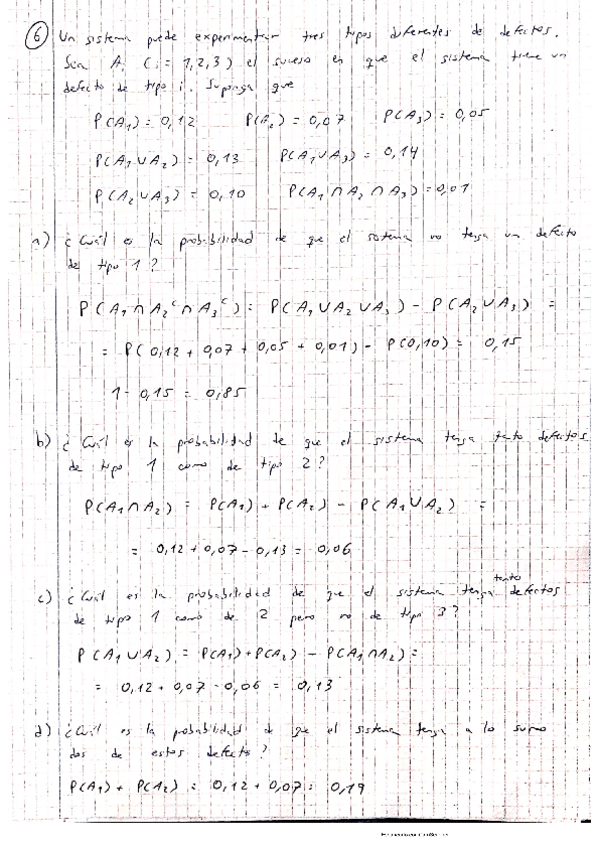 6 Un sistema puede experimentar tres tipos diferentes de defectos.
Sea Ai (i = 1,2,3) el suceso en que el sistema tiene un
defecto de tipo i. Suponga que
P(A1) = 0,12 P(A2) = 0,07 P(A3) = 0,05
P(A1 ∪ A2) = 0,13 P(A1 ∪ A3) = 0,14
P(A2 ∪ A3) = 0,10 P(A1 ∩ A2 ∩ A3) = 0,01
a) ¿Cuál es la probabilidad de que el sistema no tenga un defecto
de tipo 1?
P(A1 ∩ A2ᶜ ∩ A3ᶜ) = P(A1 ∪ A2 ∪ A3) - P(A2 ∪ A3) =
= P(0,12 + 0,07 + 0,05 + 0,01) - P(0,10) = 0,15
1 - 0,15 = 0,85
b) ¿Cuál es la probabilidad de que el sistema tenga tanto defectos
de tipo 1 como de tipo 2?
P(A1 ∩ A2) = P(A1) + P(A2) - P(A1 ∪ A2) =
= 0,12 + 0,07 - 0,13 = 0,06
c) ¿Cuál es la probabilidad de que el sistema tenga tanto defectos
de tipo 1 como de 2 pero no de tipo 3?
P(A1 ∪ A2) = P(A1) + P(A2) - P(A1 ∩ A2) =
= 0,12 + 0,07 - 0,06 = 0,13
d) ¿Cuál es la probabilidad de que el sistema tenga a lo sumo
dos de estos defectos?
P(A1) + P(A2) = 0,12 + 0,07 = 0,19